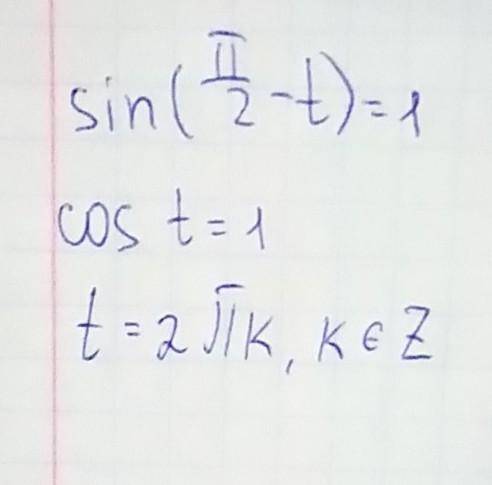 sin(π/2 - t) = 1
cos t = 1
t = 2πk, k ∈ Z